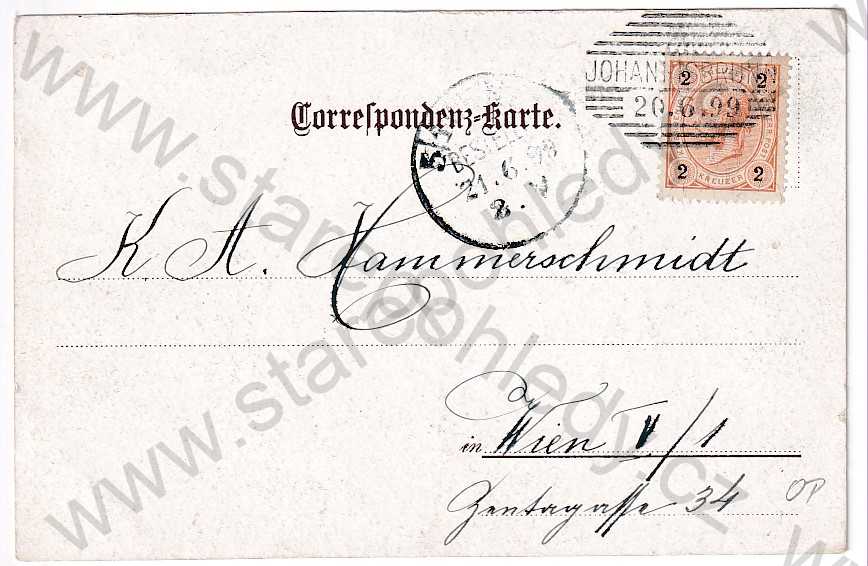 Correspondenz-Karte.
JOHANNISBRUNN
20.6.99
2 2
2 2
KREUZER
BESTELLT
21.6.99
K A. Hammerschmidt
in Wien V/1
Zentagasse 34
OP
www.staropohledy.cz
www.staropohledy.cz